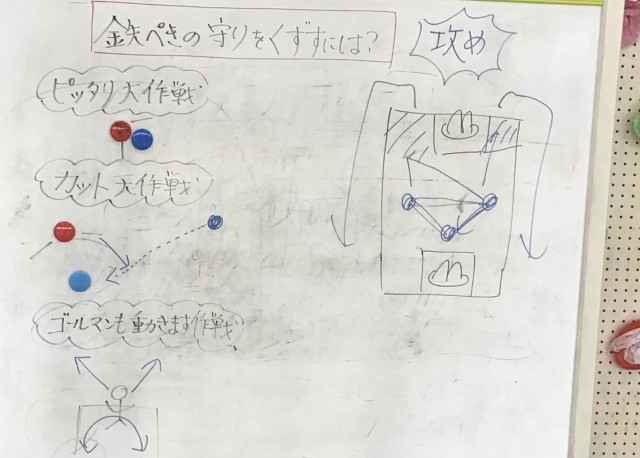 鉄ぺきの守りをくずすには?
攻め
ピッタリ大作戦
カット大作戦
ゴールマンも動かきます作戦